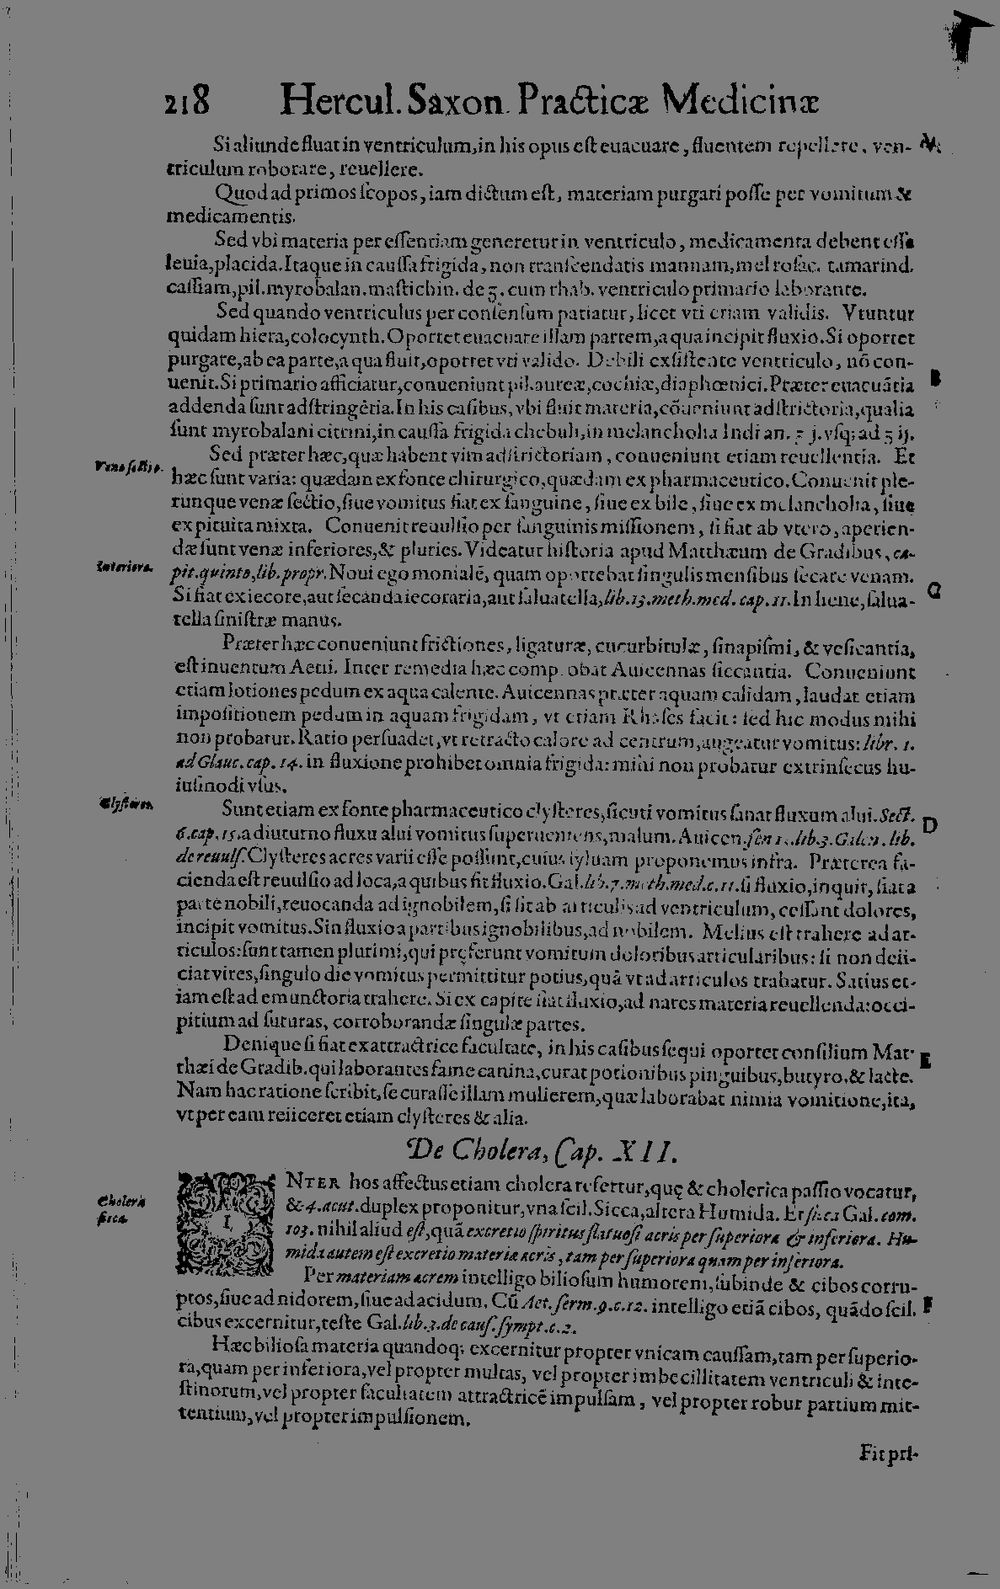 218 Hercul. Saxon. Practicæ Medicinæ
Si aliunde fluat in ventriculum, in his opus est euacuare, fluentem repellere, ven- A
triculum roborare, reuellere.
Quod ad primos scopos, iam dictum est, materiam purgari posse per vomitum &
medicamentis.
Sed vbi materia per essentiam generetur in ventriculo, medicamenta debent esse
leuia, placida. Itaque in caussa frigida, non transcendatis mannam, mel rosac. tamarind.
cassiam, pil. myrobalan. mastichin. de ʒ. cum rhab. ventriculo primario laborante.
Sed quando ventriculus per consensum patiatur, licet vti etiam validis. Vtuntur
quidam hiera, colocynth. Oportet euacuare illam partem, a qua incipit fluxio. Si oportet
purgare, ab ea parte, a qua fluit, oportet vti valido. Debili existente ventriculo, nō con-
uenit. Si primario afficiatur, conueniunt pil. aureæ, cochiæ, diaphœnici. Præter euacuātia B
addenda sunt adstringētia. In his casibus, vbi fluit materia, cōueniunt adstrictoria, qualia
sunt myrobalani citrini, in caussa frigida chebuli, in melancholia Indi an. ʒ j. vsq; ad ʒ ij.
Sed præter hæc, quæ habent vim adstrictoriam, conueniunt etiam reuellentia. Et
Venæ sectio. hæc sunt varia: quædam ex fonte chirurgico, quædam ex pharmaceutico. Conuenit ple-
runque venæ sectio, siue vomitus fiat ex sanguine, siue ex bile, siue ex melancholia, siue
ex pituita mixta. Conuenit reuulsio per sanguinis missionem, si fiat ab vtero, aperien-
dæ sunt venæ inferiores, & pluries. Videatur historia apud Matthæum de Gradibus, ca-
pit. quinto, lib. propr. Noui ego monialē, quam oportebat singulis mensibus secare venam.
Si fiat ex iecore, aut secanda iecoraria, aut saluatella, lib. 13. meth. med. cap. 11. In liene, salua- C
tella sinistræ manus.
Præter hæc conueniunt frictiones, ligaturæ, cucurbitulæ, sinapismi, & vesicantia,
est inuentum Aetii. Inter remedia hæc comprobat Auicennas siccantia. Conueniunt
etiam lotiones pedum ex aqua calente. Auicennas præter aquam calidam, laudat etiam
impositionem pedum in aquam frigidam, vt etiam Rhases facit: sed hic modus mihi
non probatur. Ratio persuadet, vt retracto calore ad centrum, augeatur vomitus: libr. 1.
ad Glauc. cap. 14. in fluxione prohibet omnia frigida: mihi non probatur extrinsecus hu-
iusmodi vsus.
Clysteres. Sunt etiam ex fonte pharmaceutico clysteres, sicuti vomitus sanat fluxum alui. Sect.
6. cap. 15. a diuturno fluxu alui vomitus superueniens, malum. Auicen. fen 1. lib. 3. Galen. lib. D
de reuuls. Clysteres acres varii esse possunt, cuius syluam proponemus infra. Præterea fa-
cienda est reuulsio ad loca, a quibus fit fluxio. Gal. lib. 7. meth. med. c. 11. si fluxio, inquit, fiat a
parte nobili, reuocanda ad ignobilem, si sit ab articulis ad ventriculum, cessant dolores,
incipit vomitus. Sin fluxio a partibus ignobilibus, ad nobilem. Melius est trahere ad ar-
ticulos: sunt tamen plurimi, qui pręferunt vomitum doloribus articularibus: si non deii-
ciat vires, singulo die vomitus permittitur potius, quā vt ad articulos trahatur. Satius et-
iam est ad emunctoria trahere. Si ex capite fiat fluxio, ad nares materia reuellenda: occi-
pitium ad suturas, corroborandæ singulæ partes.
Denique si fiat ex attractrice facultate, in his casibus sequi oportet consilium Mat- E
thæi de Gradib. qui laborantes fame canina, curat potionibus pinguibus, butyro. & lacte.
Nam hac ratione scribit, se curasse illam mulierem, quæ laborabat nimia vomitione, ita,
vt per eam reiiceret etiam clysteres & alia.
De Cholera, Cap. XII.
INTER hos affectus etiam cholera refertur, quę & cholerica passio vocatur,
Cholera sicca. & 4. acut. duplex proponitur, vna scil. Sicca, altera Humida. Et sicca Gal. com.
103. nihil aliud est, quā excretio spiritus flatuosi acris per superiora & inferiora. Hu-
mida autem est excretio materiæ acris, tam per superiora quam per inferiora.
Per materiam acrem intelligo biliosum humorem, subinde & cibos corru-
ptos, siue ad nidorem, siue ad acidum. Cū Aet. serm. 9. c. 12. intelligo etiā cibos, quādo scil. F
cibus excernitur, teste Gal. lib. 3. de caus. sympt. c. 2.
Hæc biliosa materia quandoq; excernitur propter vnicam caussam, tam per superio-
ra, quam per inferiora, vel propter multas, vel propter imbecillitatem ventriculi & inte-
stinorum, vel propter facultatem attractricē impulsam, vel propter robur partium mit-
tentium, vel propter impulsionem.
Fit pri-